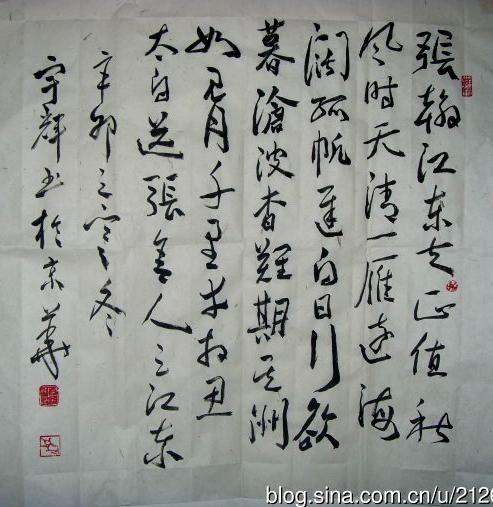 張翰江东去正值秋
风时天清一雁遠海
闊孤帆遲白日行欲
暮滄波杳難期吴洲
如见月千里幸相思
太白送張舍人之江东
辛卯之寒冬
宇輝书於京華
blog.sina.com.cn/u/2126